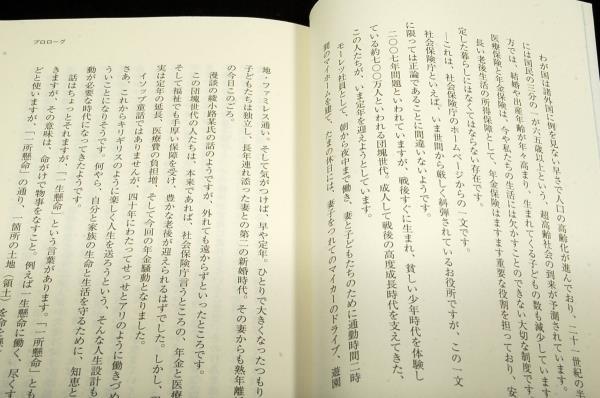 わが国は諸外国に例を見ない早さで人口の高齢化が進んでおり、二十一世紀の半
には国民の三分の一が六五歳以上という、超高齢社会の到来が予測されています。
方では、結婚や出産年齢が年々高まり、生まれてくる子どもの数も減少しています。
医療保険と年金保険は、今や私たちの生活には欠かすことのできない大切な制度です。
長い老後生活の所得保障として、年金保険はますます重要な役割を担っており、安
定した暮らしにはなくてはならない存在です。
――これは、社会保険庁のホームページからの一文です。
社会保険庁といえば、いま世間から厳しく糾弾されているお役所ですが、この一文
に限っては正論であることに間違いないようです。
二〇〇七年問題といわれていますが、戦後すぐに生まれ、貧しい少年時代を体験し
ている約七〇〇万人といわれる団塊世代。成人して戦後の高度成長時代を支えてきた、
この人たちが、いま定年を迎えようとしています。
モーレツ社員として、朝から夜中まで働き、妻と子どもたちのために通勤時間二時
間のマイホームを建て、たまの休日には、妻子をつれてのマイカーのドライブ、遊園
プロローグ
地・ファミレス通い、そして気がつけば、早や定年。ひとりで大きくなったつもり
子どもたちは独立し、長年連れ添った妻との第二の新婚時代。その妻からも熟年離
の今日このごろ。
漫談の綾小路某氏の話のようですが、外れても遠からずといったところです。
この団塊世代の人たちは、本来であれば、社会保険庁言うところの、年金と医療
そして福祉でも手厚い保障を受け、豊かな老後が迎えられるはずでした。しかし、
実は定年の延長、医療費の負担増、そして今回の年金騒動となりました。
イソップ童話ではありませんが、四十年にわたってせっせとアリのように働きづめ
さあ、これからキリギリスのように楽しく人生を送ろうという、そんな人生設計も
ういことになりそうです。何やら、自分と家族の生命と生活を守るために、知恵と
動が必要な時代になってきたようです。
話はちょっとそれますが、「一生懸命」という言葉があります。「一所懸命」とも
きますが、その意味は、命がけで物事をなすこと。例えば一生懸命に働く、尽くす
どと使いますが、「一所懸命」の通り、一箇所の土地（領土）を命を懸